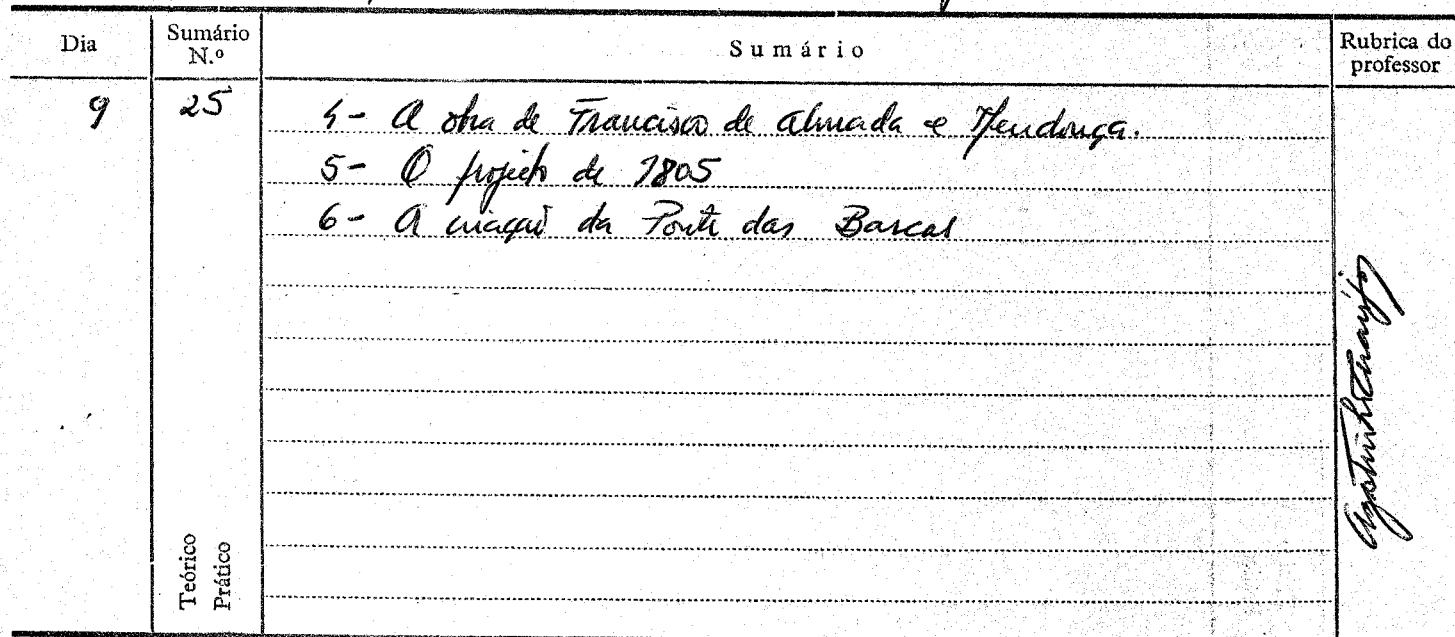 Dia
Sumário N.º
Sumário
Rubrica do professor
9
25
4- A obra de Francisco de Almada e Mendonça.
5- O projecto de 1805
6- A criação da Ponte das Barcas
Teórico
Prático
Agostinho Araújo